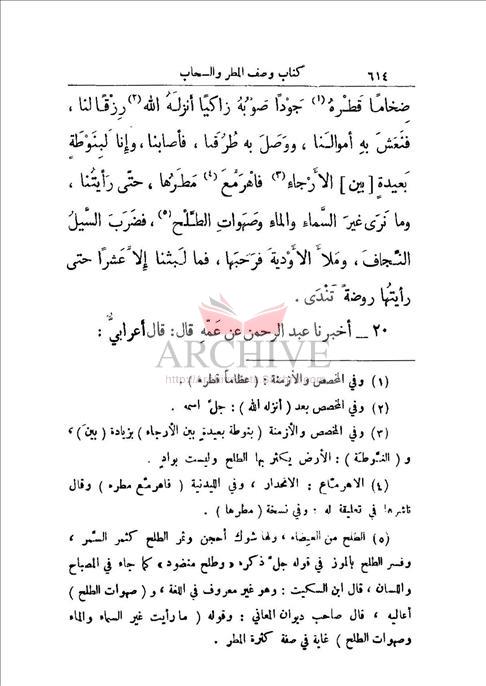 ٦١٤ كتاب وصف المطر والسحاب
ضخامًا قطْرهُ (١) جَودًا صَوْبُهُ زاكيًا أنزلهُ الله (٢) رزقًا لنا ،
فنَعَشَ بهِ أموالَنا ، ووَصَلَ به طُرُقنا ، فأصابنا ، وإنا لبِنَوْطَةٍ
بعيدةِ [ بين ] الأرْجاءِ (٣) فاهْرَمَّعَ (٤) مَطَرُها ، حتّى رأيتُنا ،
وما نَرَى غيرَ السَّماءِ والماءِ وصَهَواتِ الطَّلْحِ (٥) ، فضَرَبَ السَّيلُ
النِّجافَ ، ومَلأَ الأوديةَ فرَعَبَها ، فما لَبِثنا إلاَّ عَشرًا حتى
رأيتُها روضةً تَنْدَى .
٢٠ ــ أخبرنا عبد الرحمن عن عَمِّهِ قال : قال أعرابيٌّ :
ARCHIVE
(١) وفي المخصص والأزمنة : ( عظاماً قطره ) .
(٢) وفي المخصص بعد ( أنزله الله ) : جلَّ اسمه .
(٣) وفي المخصص والأزمنة ( بنوطة بعيدةِ بين الأرجاء ) بزيادة ( بين ) ،
و ( النَّوطة ) : الأرض يكثر بها الطلح وليست بوادٍ .
(٤) الاهرمّاع : الانحدار ، وفي الليدنية ( فاهرمّع مطره ) وقال
ناشرها في تعليقة له : وفي نسخة ( مطرها ) .
(٥) الطلح من العضاه ، ولها شوك أحجن وثمر الطلح كثمر السَّمر ،
وفسر الطلح بالموز في قوله جلَّ ذكره « وطلح منضود » كما جاء في المصباح
واللسان ، قال ابن السكيت : وهو غير معروف في اللغة ، و ( صهوات الطلح )
أعاليه ، قال صاحب ديوان المعاني : وقوله ( ما رأيت غير السماء والماء
وصهوات الطلح ) غاية في صفة كثرة المطر .